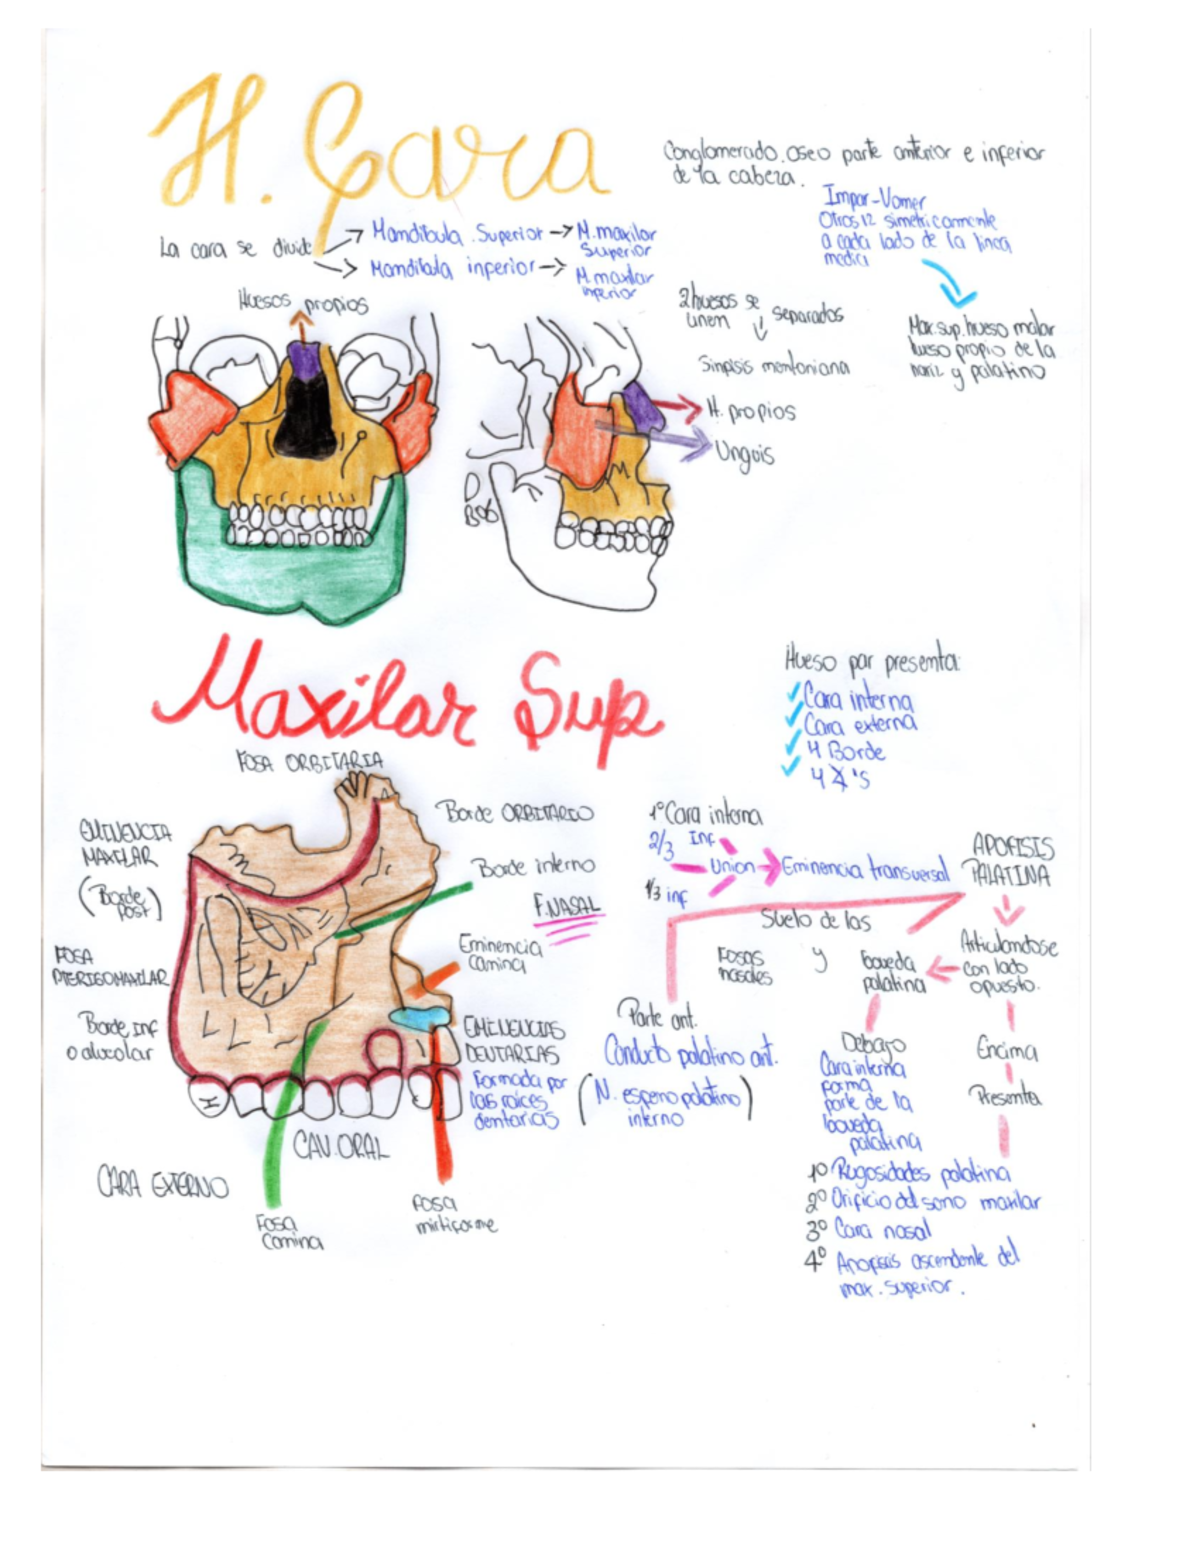 H. Cara
Conglomerado.oseo parte anterior e inferior
de la cabeza.
Impar-Vomer
Otros 12 simetricamente
a cada lado de la linea
media
La cara se divide
Mandibula.Superior → M.maxilar
Superior
Mandibula inferior → M.maxilar
inferior
Huesos propios
2 huesos se
unen
separados
Sinfisis mentoniana
Max.sup.hueso malar
hueso propio de la
nariz y palatino
H. propios
Unguis
Maxilar Sup
Hueso par presenta:
Cara interna
Cara externa
4 Borde
4 ∠'s
FOSA ORBITARIA
EMINENCIA
MAXILAR
(Borde
Post)
FOSA
PTERIGOMAXILAR
Borde inf
o alveolar
Borde ORBITARIO
Borde interno
F.NASAL
Eminencia
Camina
EMINENCIAS
DENTARIAS
Formada por
las raices
dentarias
CAV.ORAL
CARA EXTERNO
Fosa
Camina
Fosa
mirtiforme
1° Cara interna
2/3 Inf
1/3 inf
Union → Eminencia transversal
APOFISIS
PALATINA
Suelo de las
Fosas
nasales
y
boveda
palatina
Articulandose
con lado
opuesto.
Parte ant.
Conducto palatino ant.
(N. esfenopalatino)
interno
Debajo
Cara interna
forma
parte de la
boveda
palatina
Encima
Presenta
1° Rugosidades palatina
2° Orificio del seno maxilar
3° Cara nasal
4° Apofisis ascendente del
max. superior.